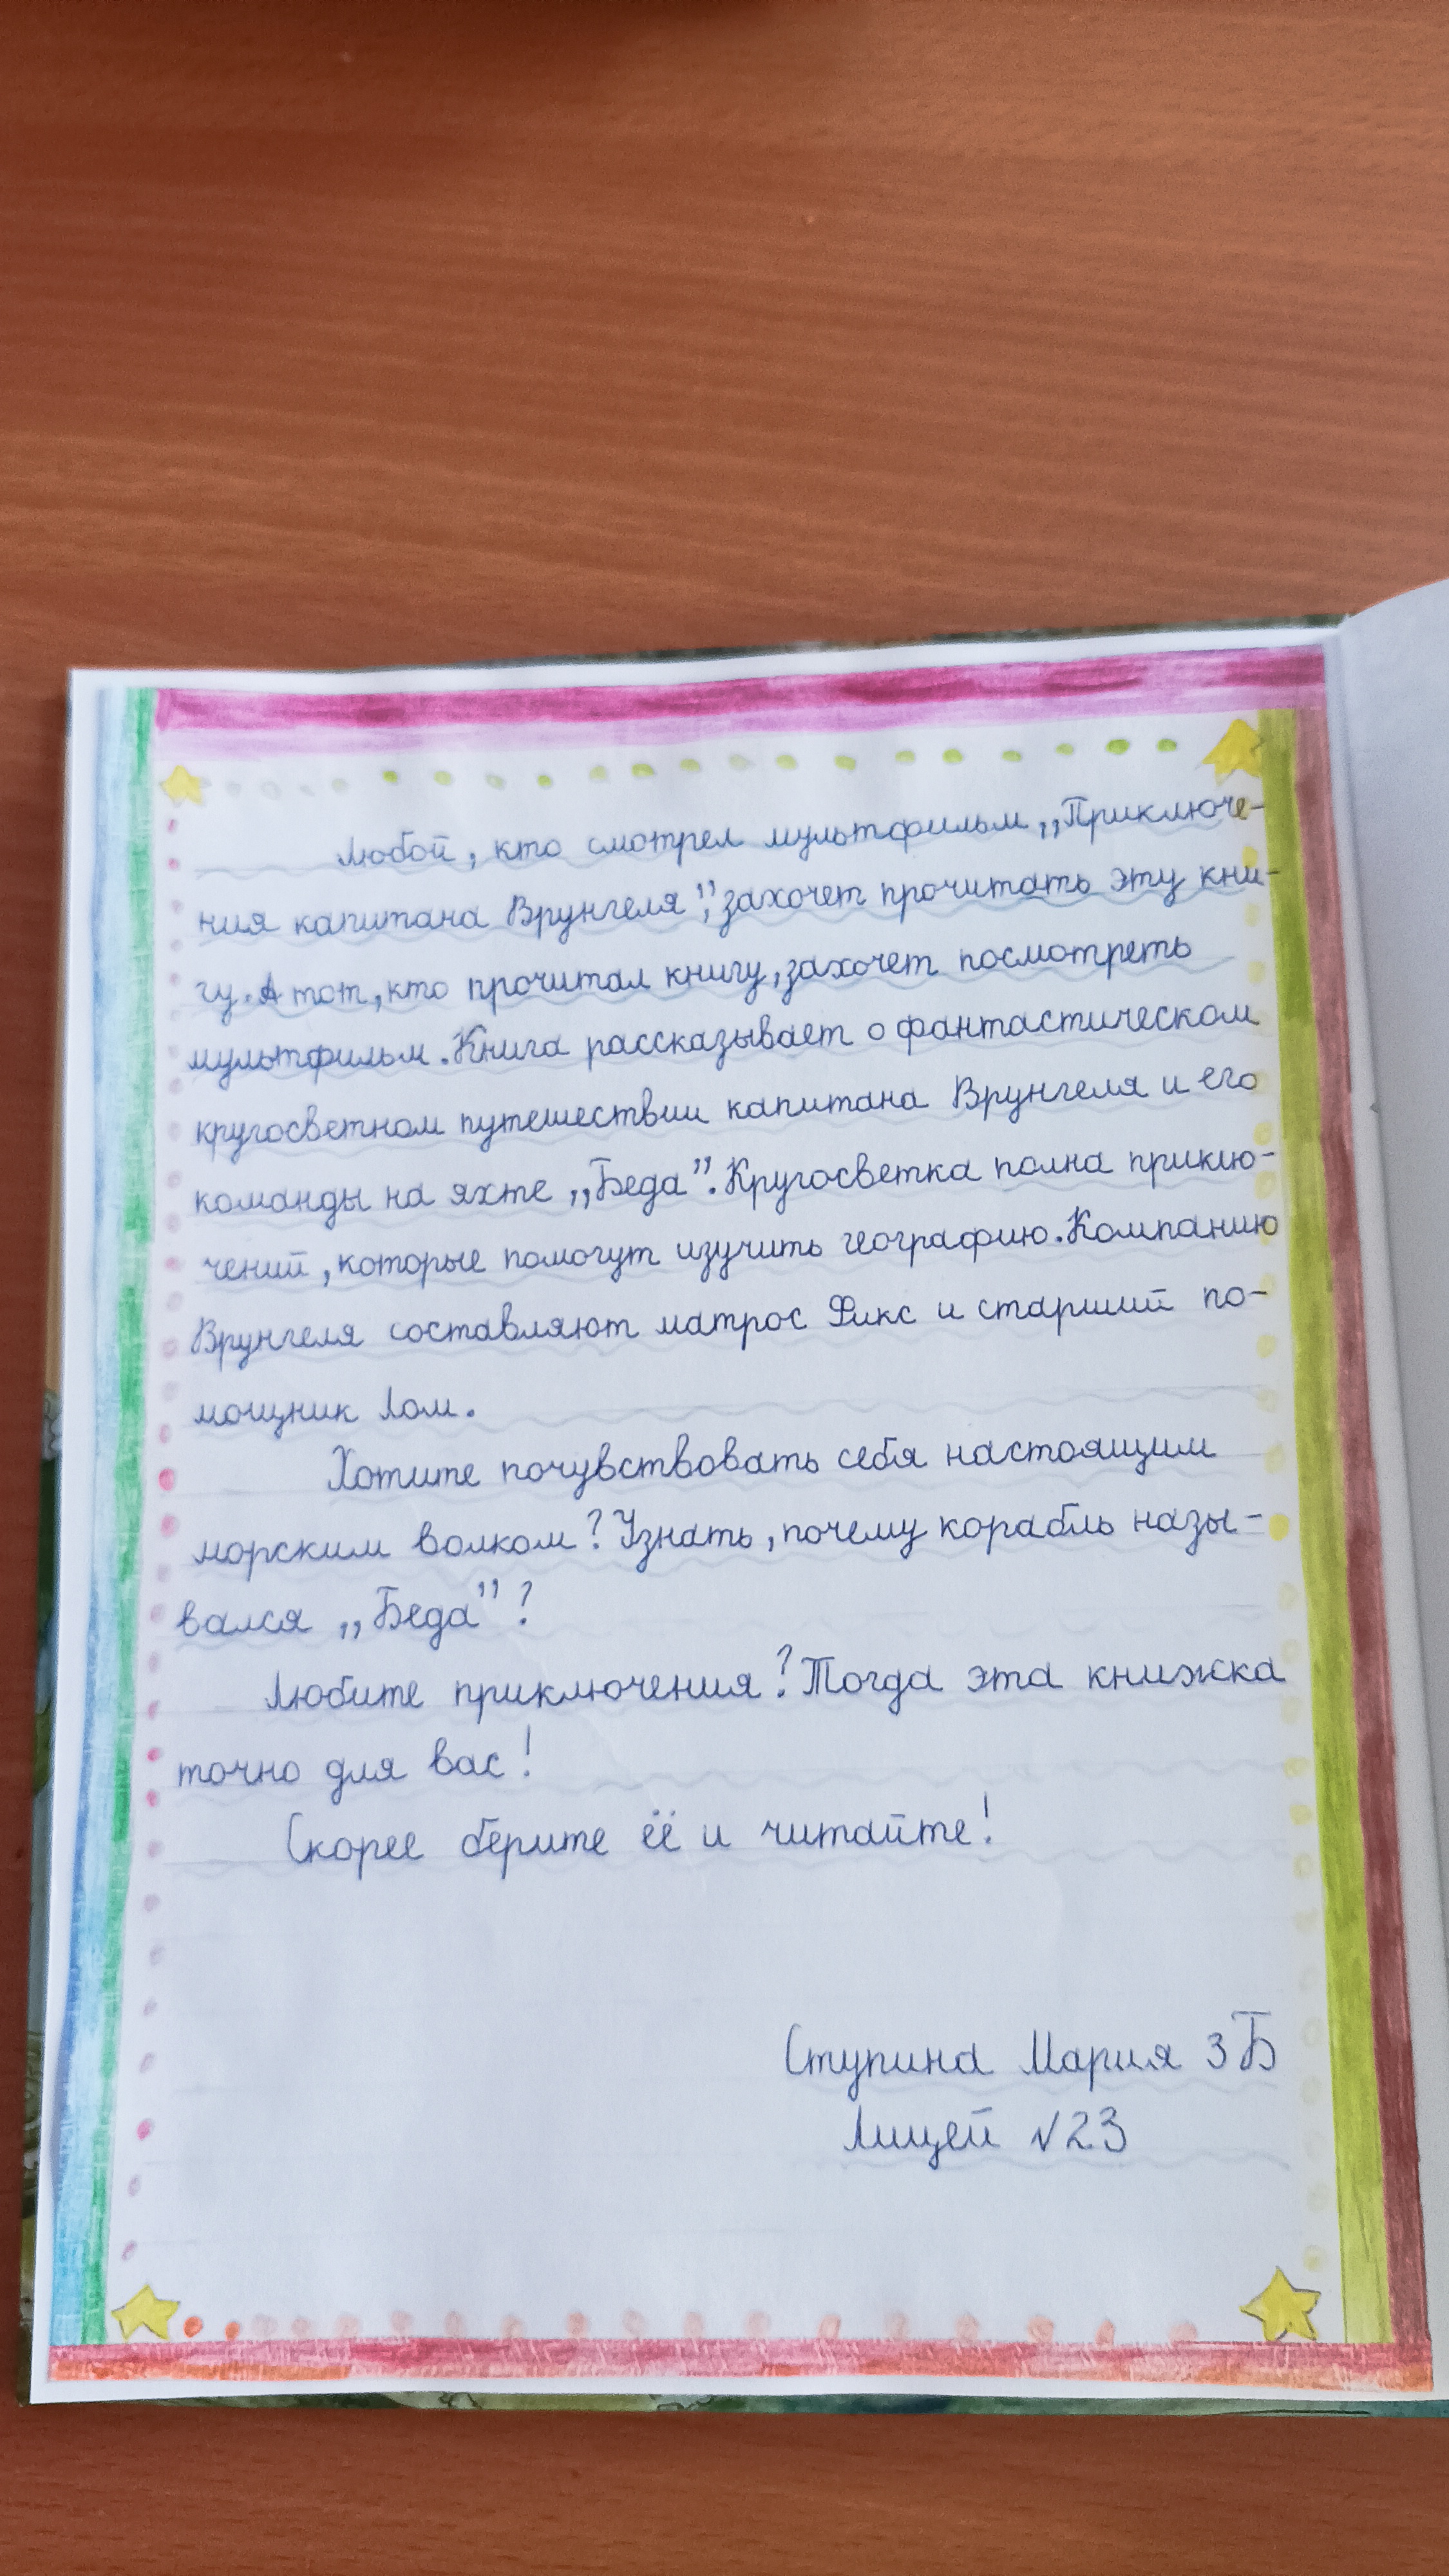 Любой, кто смотрел мультфильм „Приключе-
ния капитана Врунгеля”, захочет прочитать эту кни-
гу. А тот, кто прочитал книгу, захочет посмотреть
мультфильм. Книга рассказывает о фантастическом
кругосветном путешествии капитана Врунгеля и его
команды на яхте „Беда”. Кругосветка полна приклю-
чений, которые помогут изучить географию. Компанию
Врунгеля составляют матрос Фикс и старший по-
мощник Лом.
Хотите почувствовать себя настоящим
морским волком? Узнать, почему корабль назы-
вался „Беда”?
Любите приключения? Тогда эта книжка
точно для вас!
Скорее берите её и читайте!
Ступина Мария 3Б
Лицей №23